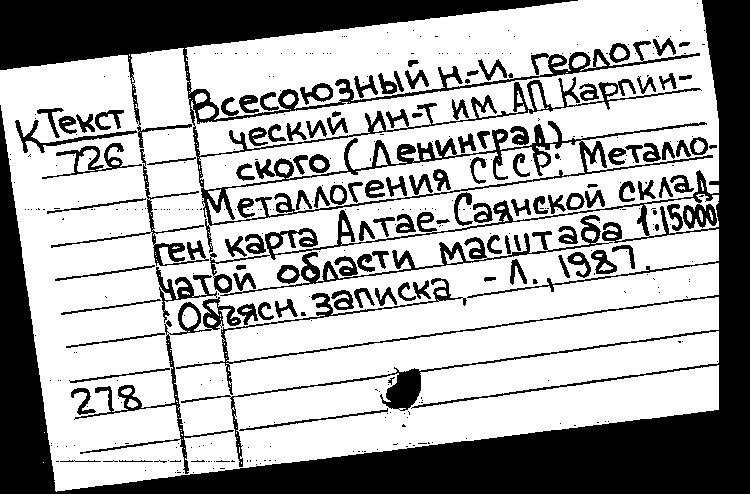 Всесоюзный н.-и. геологи-
К Текст
726
ческий ин-т им. А.П. Карпин-
ского (Ленинград).
Металлогения СССР: Металло-
ген. карта Алтае-Саянской склад-
чатой области масштаба
: Объясн. записка, - Л., 1987.
278